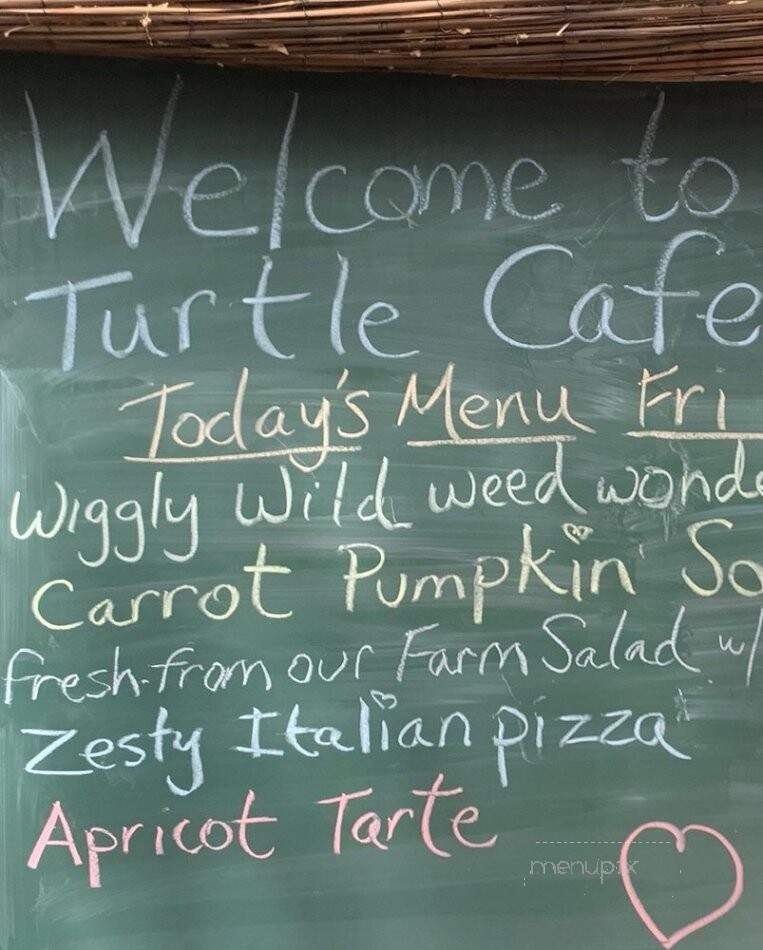 Welcome to
Turtle Cafe
Today's Menu Fri
Wiggly Wild weed wonde
Carrot Pumpkin So
fresh-from our Farm Salad w/
Zesty Italian pizza
Apricot Tarte
menupix